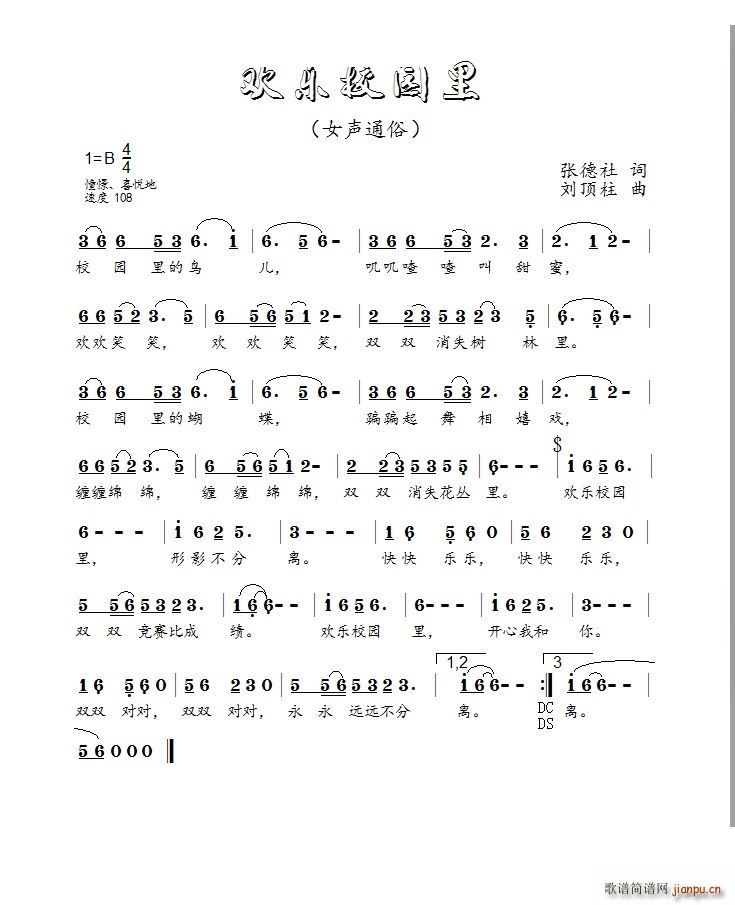 欢乐校园里
（女声通俗）
1=B 4/4
张德社 词
憧憬、喜悦地
刘顶柱 曲
速度 108
3 6 6 5 3 6. i | 6. 5 6 - | 3 6 6 5 3 2. 3 | 2. 1 2 - |
校 园 里的鸟 儿， 叽叽喳 喳叫 甜 蜜，
6 6 5 2 3. 5 | 6 5 6 5 1 2 - | 2 2 3 5 3 2 3 5 | 6. 5 6 - |
欢欢笑 笑， 欢 欢 笑 笑， 双 双 消失树 林 里。
3 6 6 5 3 6. i | 6. 5 6 - | 3 6 6 5 3 2. 3 | 2. 1 2 - |
校 园 里的蝴 蝶， 蹁蹁起 舞 相 嬉 戏，
6 6 5 2 3. 5 | 6 5 6 5 1 2 - | 2 2 3 5 3 5 5 | 6 - - - | i 6 5 6. |
缠缠绵 绵， 缠 缠 绵 绵， 双 双 消失花丛 里。 欢乐校园
6 - - - | i 6 2 5. | 3 - - - | 1 6 5 6 0 | 5 6 2 3 0 |
里， 形影不分 离。 快快 乐乐， 快快 乐乐，
5 5 6 5 3 2 3. | 1 6 6 - - | i 6 5 6. | 6 - - - | i 6 2 5. | 3 - - - |
双 双 竞赛比成 绩。 欢乐校园 里， 开心我和 你。
1,2 3
1 6 5 6 0 | 5 6 2 3 0 | 5 5 6 5 3 2 3. | i 6 6 - - :| i 6 6 - - |
双双 对对， 双双 对对， 永 永 远远不分 离。 DC 离。
DS
5 6 0 0 0 ‖
歌谱简谱网 jianpu.cn